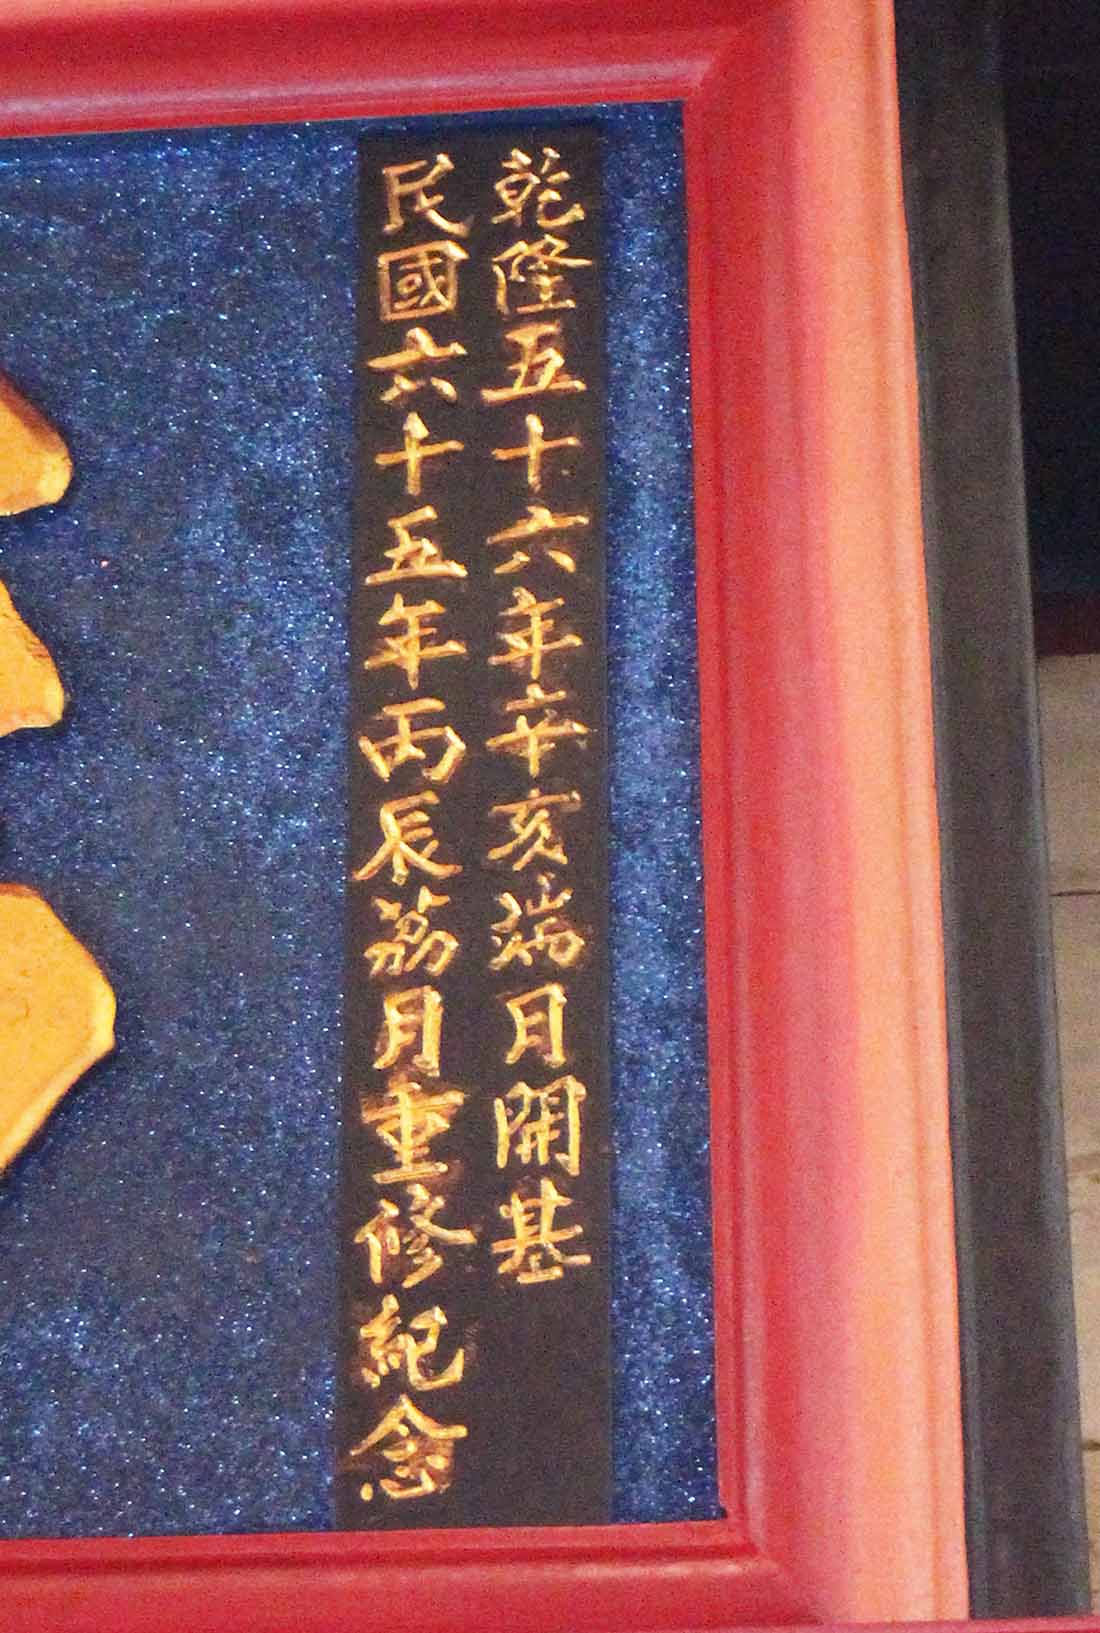 乾隆五十六年辛亥端月開基
民國六十五年丙辰荔月重修紀念